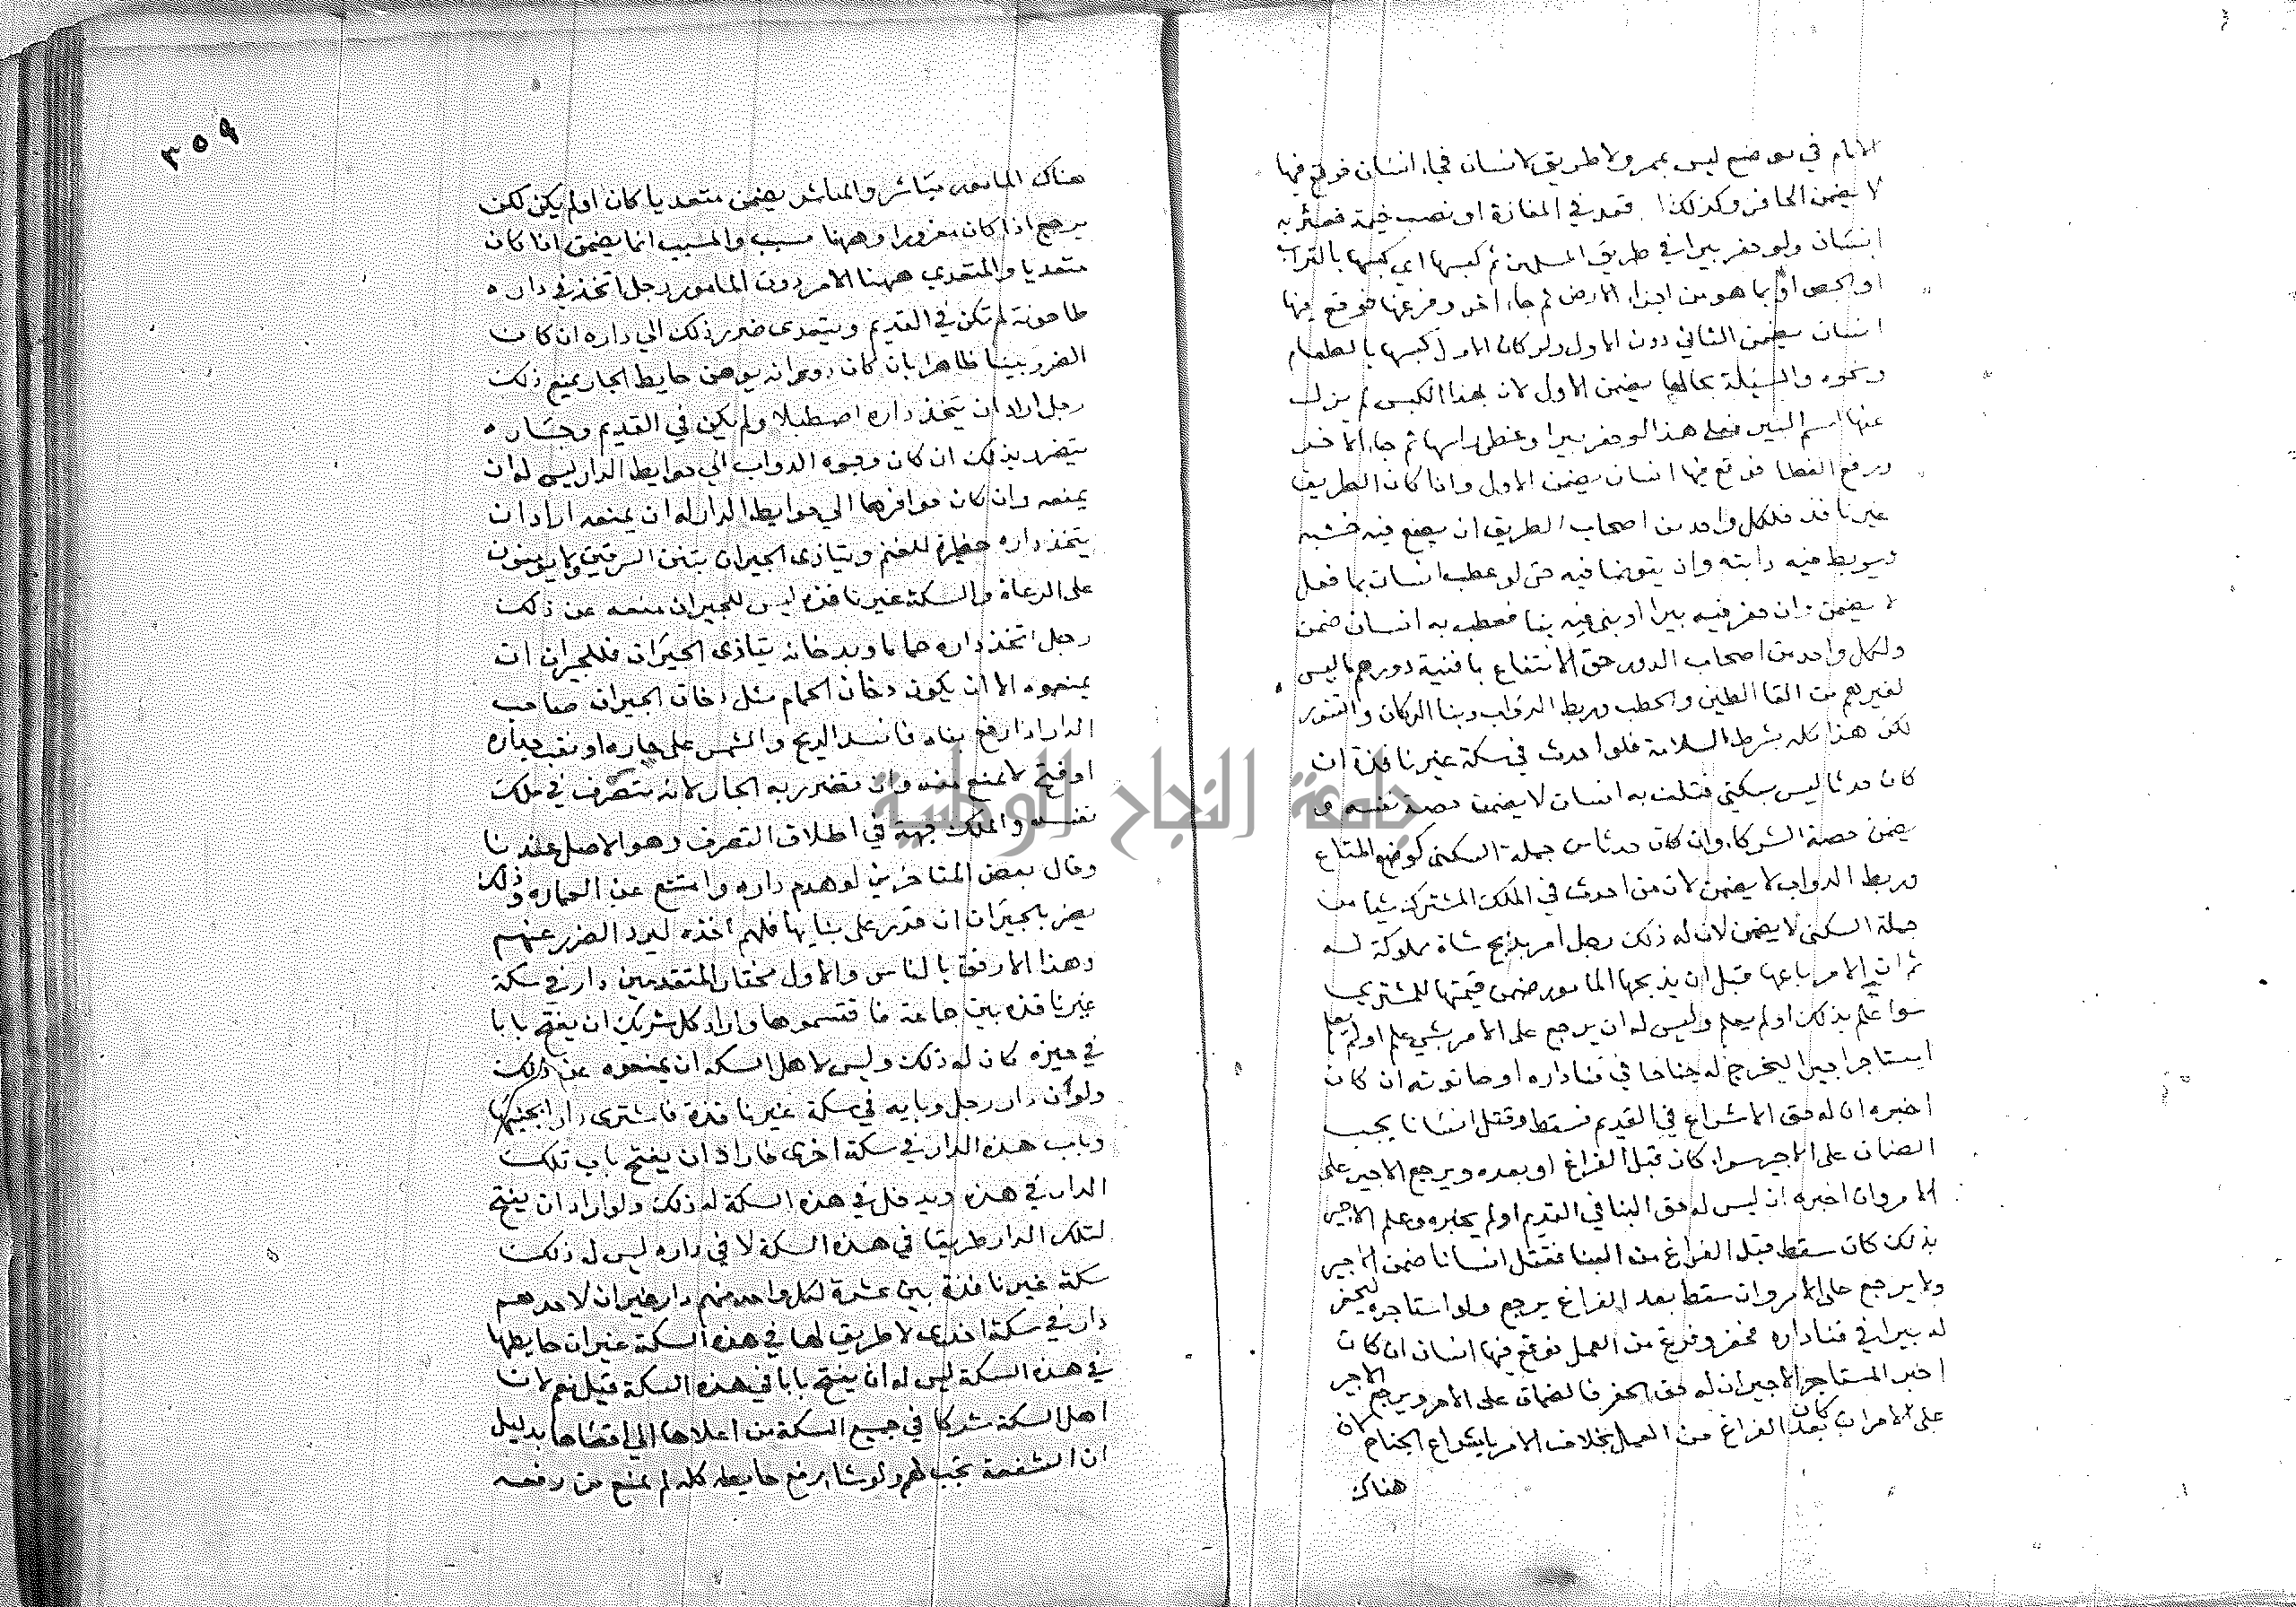 الامام في موضع ليس بممر ولا طريق لانسان فجاء انسان فوقع فيها
لا يضمن الحافر وكذلك اذا قعد في المفازة او نصب خيمة فعثر به
انسان ولو حفر بيرا في طريق المسلمين ثم كبسها اي كبسها بالتراب
او الجص او بما هو من اجزاء الارض ثم جاء اخر وفرغها فوقع فيها
انسان يضمن الثاني دون الاول ولو كان الاول كبسها بالطعام
ونحوه والمسئلة بحالها يضمن الاول لان بهذا الكبس لم يزل
عنها اسم البير فعلى هذا لو حفر بيرا وغطى راسها ثم جاء الاخر
ورفع الغطا فوقع فيها انسان يضمن الاول واذا كان الطريق
غير نافذ فلكل واحد من اصحاب الطريق ان يضع فيه خشبة
ويربط فيه دابته وان يتوضا فيه حتى لو عطب انسان بما فعل
لا يضمن وان حفر فيه بيرا او بنى فيه بنا فعطب به انسان ضمن
ولكل واحد من اصحاب الدور حق الانتفاع بافنية دورهم ما ليس
لغيرهم من القا الطين والحطب وربط الدواب وبنا الدكان والتنور
لكن هذا كله بشرط السلامة فلو احدث في سكة غير نافذة ان
كان حدثا ليس بسكنى فتلف به انسان لا يضمن حصة نفسه و
يضمن حصة الشركاء وان كان حدثا من جملة السكنى كوضع المتاع
وربط الدواب لا يضمن لان من احدث في الملك المشترك شيا من
جملة السكنى لا يضمن لان له ذلك رجل امر بذبح شاة مملوكة له
ثم ان الامر باعها قبل ان يذبحها المامور ضمن قيمتها للمشتري
سوا علم بذلك او لم يعلم وليس له ان يرجع على الامر بشي علم او لم يعلم
استاجر اجيرا ليخرج له جناحا في فنا داره او حانوته ان كان
اخبره ان له حق الاشراع في القديم فسقط وقتل انسانا يجب
الضمان على الاجير سوا كان قبل الفراغ او بعده ويرجع الاجير على
الامر وان اخبره ان ليس له حق البنا في القديم او لم يخبره وعلم الاجير
بذلك كان سقط قبل الفراغ من البنا فقتل انسانا ضمن الاجير
ولا يرجع على الامر وان سقط بعد الفراغ يرجع ولو استاجره ليحفر
له بيرا في فنا داره فحفر وفرغ من العمل فوقع فيها انسان ان كان
اخبر المستاجر الاجير ان له حق الحفر فالضمان على الامر ويرجع الاجير
على الامر ان كان بعد الفراغ من العمل بخلاف الامر باشراع الجناح لان
هناك
٣٥٩
هناك المامور مباشر والمباشر يضمن متعديا كان او لم يكن لكن
يرجع اذا كان مغرورا وههنا مسبب والمسبب انما يضمن اذا كان
متعديا والمتعدي ههنا الامر دون المامور رجل اتخذ في داره
طاحونة لم تكن في القديم ويتعدى ضرر ذلك الي داره ان كان
الضرر بينا ظاهرا بان كان دورانه يوهن حايط الجار يمنع ذلك
رجل اراد ان يتخذ داره اصطبلا ولم يكن في القديم وجاره
يتضرر بذلك ان كان وجوه الدواب الي حوايط الدار ليس له ان
يمنعه وان كان حوافرها الي حوايط الدار له ان يمنعه اراد ان
يتخذ داره حظيرة للغنم ويتاذى الجيران بنتن السرقين ولا يومنون
على الرعاة والسكة غير نافذه ليس للجيران منعه عن ذلك
رجل اتخذ داره حماما وبدخانه يتاذى الجيران فللجيران ان
يمنعوه الا ان يكون دخان الحمام مثل دخان الجيران صاحب
الدار اذا رفع بناه فانسد الريح والشمس على جاره او نقب جداره
او فتح لا يمنع منه وان تضرر به الجار لانه متصرف في ملك
نفسه والملك جهة في اطلاق التصرف وهو الاصل عندنا
وقال بعض المتاخرين لو هدم داره وامتنع عن العماره وذلك
يضر بالجيران ان قدر على بنايها فلهم اخذه ليرد الضرر عنهم
وهذا الارفق بالناس والاول مختار المتقدمين دار في سكة
غير نافذه بين جماعة فاقتسموها واراد كل شريك ان يفتح بابا
في حيزه كان له ذلك وليس لاهل السكه ان يمنعوه عن ذلك
ولو ان دار رجل وبابه في سكة غير نافذة فاشترى دارا بجنبها
وباب هذه الدار في سكة اخرى فاراد ان يفتح باب تلك
الدار في هذه ويدخل في هذه السكة له ذلك ولو اراد ان يفتح
لتلك الدار طريقا في هذه السكة لا في داره ليس له ذلك
سكة غير نافذة بين عشرة لكل واحد منهم دار غير ان لاحدهم
دار في سكة اخرى لا طريق لها في هذه السكة غير ان حايطها
في هذه السكة ليس له ان يفتح بابا في هذه السكة قيل نعم لان
اهل السكة شركا في جميع السكة من اعلاها الي اقصاها بدليل
ان الشفعة تجب لهم ولو شاء رفع حايطه كله لم يمنع من رفعه
جامعة النجاح الوطنية